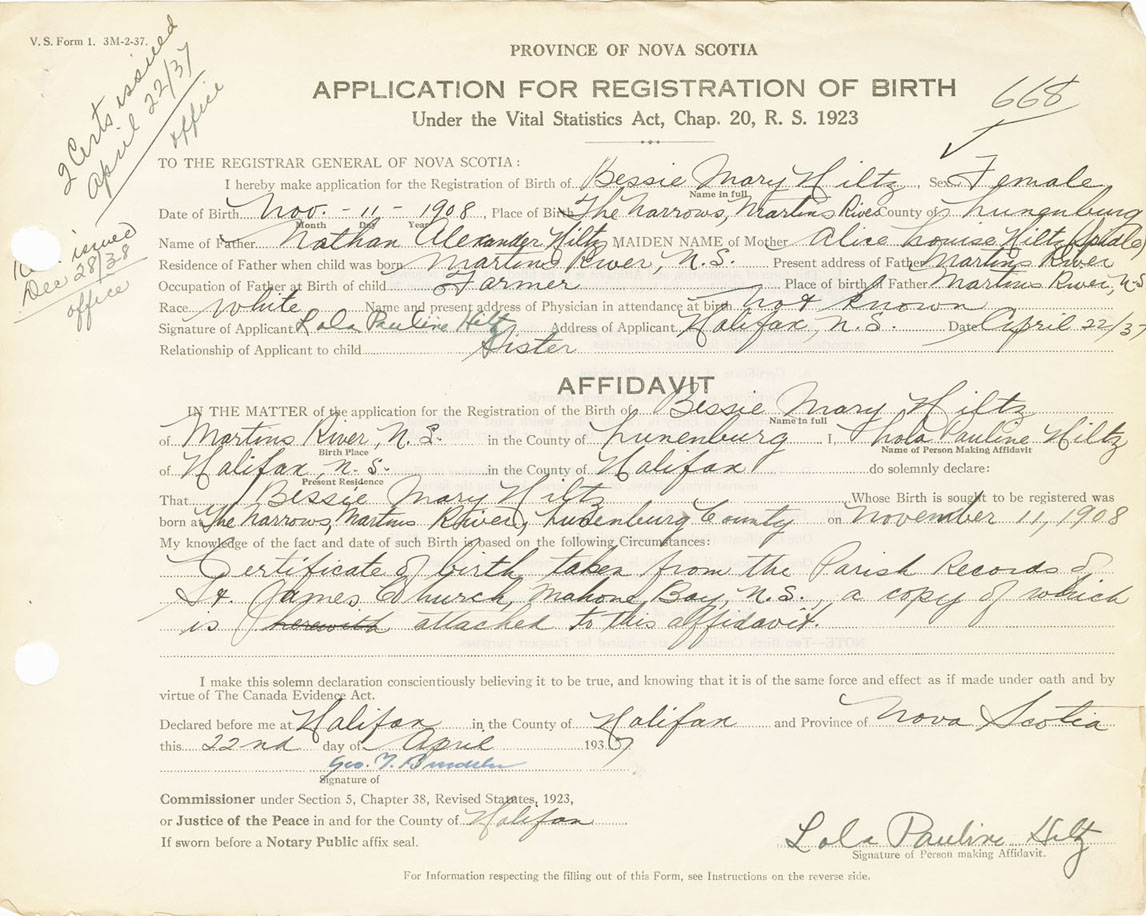 V. S. Form 1. 3M-2-37.
2 Certs issued
April 22/37
office
Dec 28/38
office
PROVINCE OF NOVA SCOTIA
APPLICATION FOR REGISTRATION OF BIRTH
668
Under the Vital Statistics Act, Chap. 20, R. S. 1923
TO THE REGISTRAR GENERAL OF NOVA SCOTIA:
I hereby make application for the Registration of Birth of Bessie Mary Hiltz, Sex Female
Name in full
Date of Birth Nov. - 11 - 1908, Place of Birth The Narrows, Martins River County of Lunenburg
Month Day Year
Name of Father Nathan Alexander Hiltz MAIDEN NAME of Mother Alice Louise Hiltz
Residence of Father when child was born Martins River, N.S. Present address of Father Martins River
Occupation of Father at Birth of child Farmer Place of birth of Father Martins River, N.S.
Race White Name and present address of Physician in attendance at birth not known
Signature of Applicant Lola Pauline Hiltz Address of Applicant Halifax, N.S. Date April 22/37
Relationship of Applicant to child Sister
AFFIDAVIT
IN THE MATTER of the application for the Registration of the Birth of Bessie Mary Hiltz
Name in full
of Martins River, N.S. in the County of Lunenburg I, Lola Pauline Hiltz
Birth Place Name of Person Making Affidavit
of Halifax, N.S. in the County of Halifax do solemnly declare:
Present Residence
That Bessie Mary Hiltz Whose Birth is sought to be registered was
born at The Narrows, Martins River, Lunenburg County on November 11, 1908
My knowledge of the fact and date of such Birth is based on the following Circumstances:
Certificate of birth taken from the Parish Records of
St. James Church, Mahone Bay, N.S., a copy of which
is herewith attached to this affidavit.
I make this solemn declaration conscientiously believing it to be true, and knowing that it is of the same force and effect as if made under oath and by
virtue of The Canada Evidence Act.
Declared before me at Halifax in the County of Halifax and Province of Nova Scotia
this 22nd day of April 1937
Geo. T.
Signature of
Commissioner under Section 5, Chapter 38, Revised Statates, 1923,
or Justice of the Peace in and for the County of Halifax
If sworn before a Notary Public affix seal.
Lola Pauline Hiltz
Signature of Person making Affidavit.
For Information respecting the filling out of this Form, see Instructions on the reverse side.